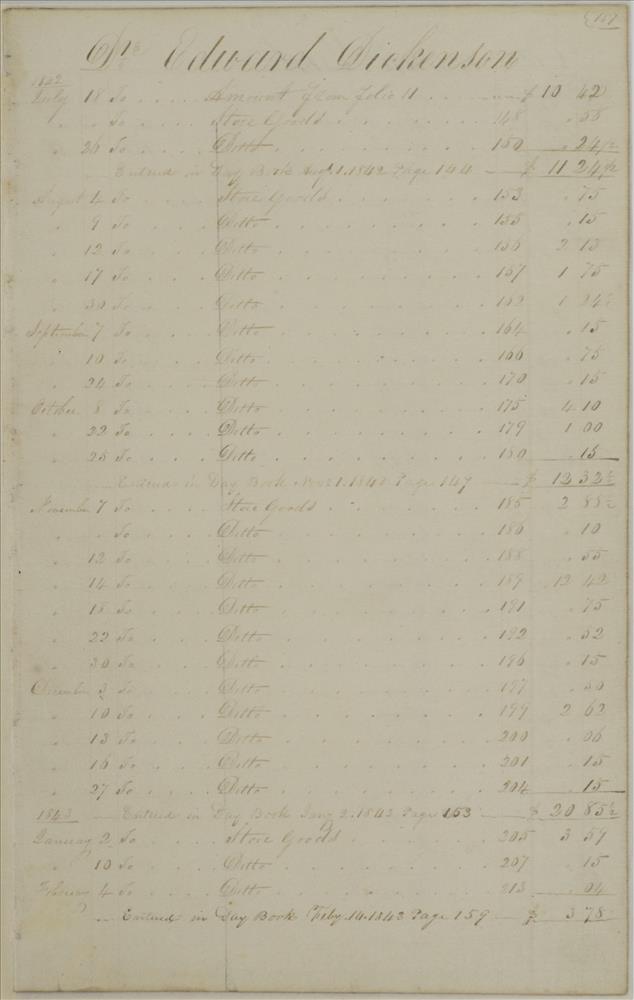 157
Dr. Edward Dickenson
1842
July 18 To . . . . Amount from folio 11 . . . . $ 10 42
" " To . . . . Store Goods . . . . 148 . 58
" 26 To . . . . Ditto . . . . 150 . 24 1/2
Entered in Day Book Augt. 1. 1842 Page 144 — $ 11 24 1/2
August 4 To . . . . Store Goods . . . . 153 . 75
" 9 To . . . . Ditto . . . . 155 . 15
" 12 To . . . . Ditto . . . . 156 2 13
" 17 To . . . . Ditto . . . . 157 1 75
" 30 To . . . . Ditto . . . . 162 1 24 1/2
September 7 To . . . . Ditto . . . . 164 . 15
" 10 To . . . . Ditto . . . . 166 . 75
" 24 To . . . . Ditto . . . . 170 . 15
October 8 To . . . . Ditto . . . . 175 4 10
" 22 To . . . . Ditto . . . . 179 1 00
" 25 To . . . . Ditto . . . . 180 . 15
Entered in Day Book Novr. 1. 1842 Page 147 — $ 12 32 1/2
November 7 To . . . . Store Goods . . . . 185 2 88 1/2
" " To . . . . Ditto . . . . 186 . 10
" 12 To . . . . Ditto . . . . 188 . 55
" 14 To . . . . Ditto . . . . 189 12 42
" 18 To . . . . Ditto . . . . 191 . 75
" 22 To . . . . Ditto . . . . 192 . 32
" 30 To . . . . Ditto . . . . 196 . 15
December 3 To . . . . Ditto . . . . 197 . 50
" 10 To . . . . Ditto . . . . 199 2 62
" 13 To . . . . Ditto . . . . 200 . 06
" 16 To . . . . Ditto . . . . 201 . 15
" 27 To . . . . Ditto . . . . 204 . 15
1843 — Entered in Day Book Jany. 2. 1843 Page 153 — $ 20 85 1/2
January 2 To . . . . Store Goods . . . . 205 3 59
" 10 To . . . . Ditto . . . . 207 . 15
February 4 To . . . . Ditto . . . . 213 . 04
Entered in Day Book Feby. 14. 1843 Page 159 — $ 3 78